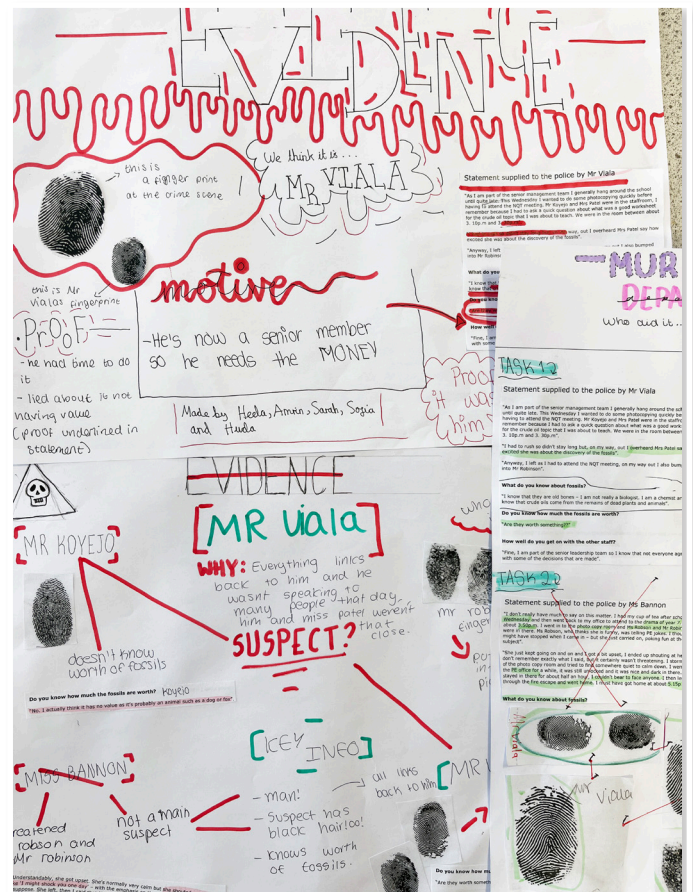 EVIDENCE
this is
a finger print
at the crime scene
We think it is...
MR VIALA
this is Mr
Vialas fingerprint
motive
-He's now a senior member
so he needs the MONEY
•PrOOF=
- he had time to do
it
- lied about it not
having value
(proof underlined in
statement)
Made by Heela, Amnin, Sarah,
and Huda
Statement supplied to the police by Mr Viala
"As I am part of the senior management team I generally hang around the school
until quite late. This Wednesday I wanted to do some photocopying quickly before
having to attend the NQT meeting. Mr Koyejo and Mrs Patel were in the staffroom, I
remember because I had to ask a quick question about what was a good worksheet
for the crude oil topic that I was about to teach. We were in the room between about
3. 10p.m and 3
way, but I overheard Mrs Patel say how
excited she was about the discovery of the fossils".
"Anyway, I left
also bumped
into Mr Robinso
What do you
"I know that
know that
How well
"Fine, I am
with some
Proo
it wa
him
MUR
DEPA
Who did it...
TASK 1
Statement supplied to the police by Mr Viala
"As I am part of the senior management team I generally hang around the sch
until quite late. This Wednesday I wanted to do some photocopying quickly be
having to attend the NQT meeting. Mr Koyejo and Mrs Patel were in the staffro
remember because I had to ask a quick question about what was a good work
for the crude oil topic that I was about to teach. We were in the room between
3. 10p.m and 3. 30p.m".
"I had to rush so didn't stay long but, on my way, out I overheard Mrs Patel sa
excited she was about the discovery of the fossils".
"Anyway, I left as I had to attend the NQT meeting, on my way out I also bum
into Mr Robinson".
What do you know about fossils?
"I know that they are old bones – I am not really a biologist, I am a chemist a
know that crude oils come from the remains of dead plants and animals".
Do you know how much the fossils are worth?
"Are they worth something?!"
How well do you get on with the other staff?
"Fine, I am part of senior leadership team so I know that not everyone ag
with some of the decisions that are made".
TASK 2
Statement supplied to the police by Ms Bannon
"I don't really have much to say on this matter. I had my cup of tea after scho
Wednesday and then went back to my office to attend to the drama of year 7
about 3.50p.m. I went in to the photo copy room and Ms Robson and Mr Robin
were in there. Ms Robson, who thinks she is funny, was telling PE jokes. I thou
might have stopped when I came in – but she just carried on, poking fun at th
subject".
"She just kept going on and on and I got a bit upset, I ended up shouting at he
don't remember exactly what I said, but it certainly wasn't threatening. I storm
of the photo copy room and tried to find somewhere quiet to calm down. I went
the PE office for a while, it was still unlocked and it was nice and dark in there.
stayed in there for about half an hour, I couldn't bear to face anyone. I then le
through the fire escape and went home. I must have got home at about 5.15p
What do you know about fossils?
Mr Viala
EVIDENCE
[MR Viala]
WHY: Everything links
back to him and he
wasnt speaking to
many people that day
him and miss patel werent
that
close.
SUSPECT?
MR KOYEJO
doesn't know
worth of fossils
Do you know how much the fossils are worth? Koyejo
"No, I actually think it has no value as it's probably an animal such as a dog or fox"
mr rob
finger
[KEY INFO]
- man!
- Suspect has
black hair!oo!
- Knows worth
of fossils.
all links
back to him
[MR
MISS BANNON
reatened
robson and
Mr robinson
not a main
suspect
Understandably, she got upset. She's normally very calm but she
Do you know how m
"Are they worth someth